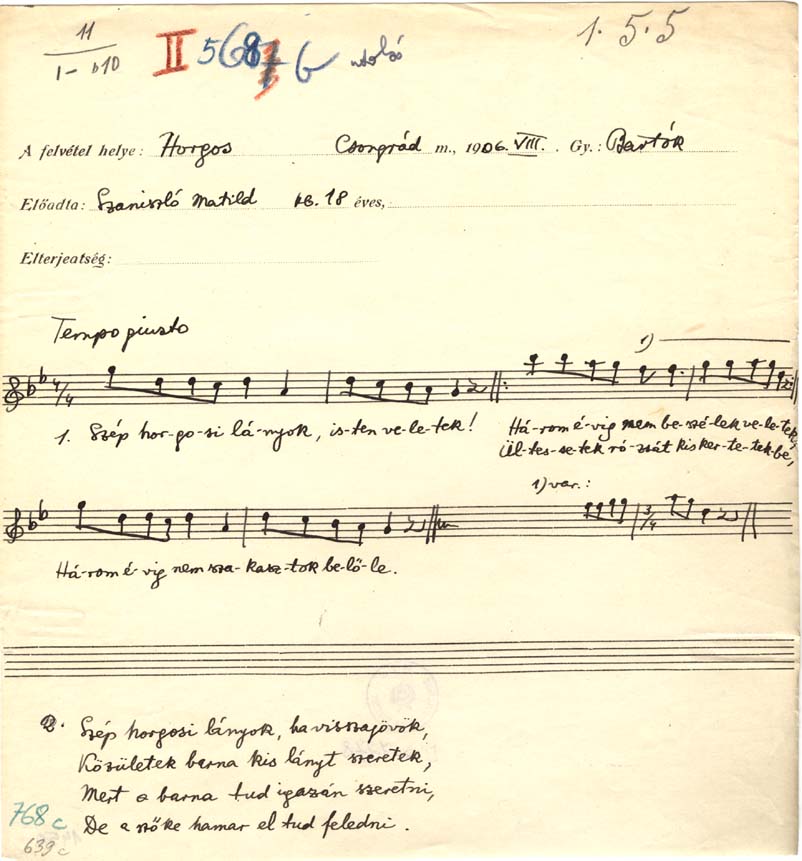 11
I- b10
II 5687 b utolsó
1. 5. 5
A felvétel helye: Horgos Csongrád m., 1906. VIII. Gy.: Bartók
Előadta: Szaniszló Matild kb. 18 éves,
Elterjeatség:
Tempo giusto
1)
4/4
1. Szép hor-go-si lá-nyok, is-ten ve-le-tek! Há-rom é-vig nem be-szé-lek ve-le-tek,
Ül-tes-se-tek ró-zsát kis ker-te-tek-be,
1) var.:
3/4
Há-rom é-vig nem sza-kasz-tok be-lő-le.
2. Szép horgosi lányok, ha visszajövök,
Közületek barna kis lányt szeretek,
Mert a barna tud igazán szeretni,
De a szőke hamar el tud feledni.
768 c
639 c